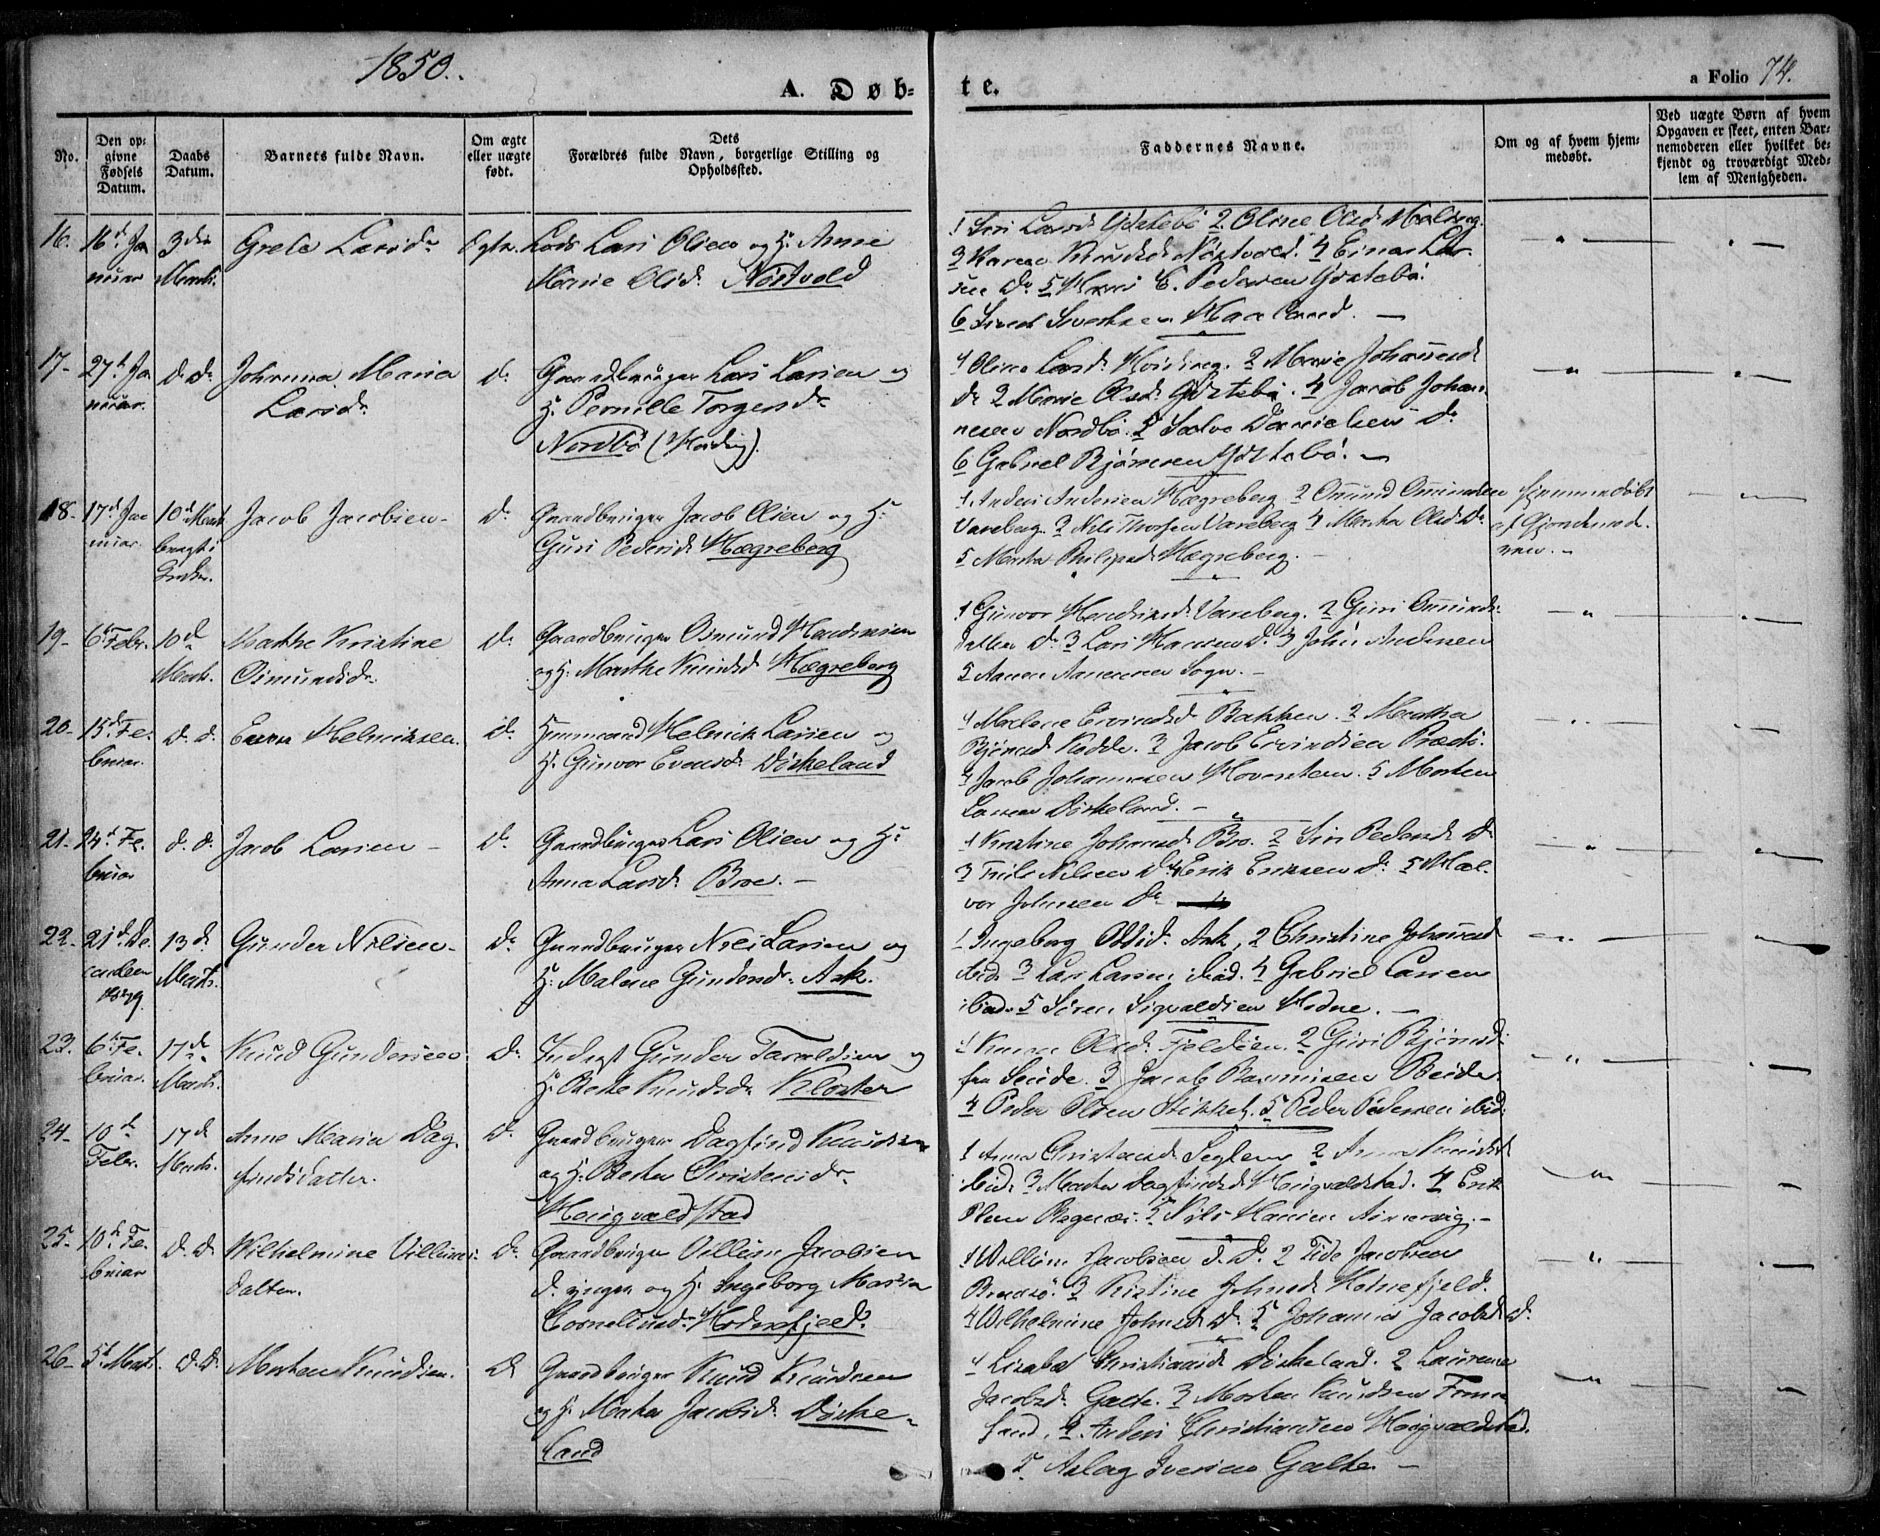 1850.
A. Døb-
te.
a Folio 74.
No.
Den op-
givne
Fødsels
Datum.
Daabs
Datum.
Barnets fulde Navn.
Om ægte
eller uægte
født.
Dets
Forældres fulde Navn, borgerlige Stilling og
Opholdssted.
Faddernes Navne.
Om og af hvem hjem-
medøbt.
Ved uægte Børn af hvem
Opgaven er skeet, enten Bar-
nemoderen eller hvilket be-
kjendt og troværdigt Med-
lem af Menigheden.
16.
16d Ja
nuar
3die
Marts.
Grete Larsdr
Lars Olsen og H. Anne
Marie Olsd. Nøstvold
1 Siri Larsd. Ydstebø 2 Oline Olsd.
3 Karen Knudsd. Nøstvold. 4 Einar Lar-
sen Do 5 E. Pedersen Ydstebø.
6 Sivertsen Haaland. —
17-
27d Ja
nuar.
d. Do
Johanna Maria
Larsdr
do
Gaardbruger Lars Larsen og
H. Pernille Torgersdr
Nordbø
1 Olina Larsd. 2 Marie Johannesd.
Do 3 Marie Olsd. Ydstebø. 4 Jacob Johan-
nesen Nordbø. 5 Salve Danielsen Do
6 Gabriel Bjørnsen Ydstebø. —
18-
17d Ja
nuar
10d Marts
bragt i
Kirken.
Jacob Jacobsen -
Do
Gaardbruger Jacob Olsen og H.
Guri Pedersd. Hægreberg
1 Anders Andersen Hægreberg 2 Omund Omundsen
Vareberg. 3 Nils Thorsen Vareberg 4 Martha Olsd. Do
5 Martha Philipsd. Hægreberg. -
hjemmedøbt
af Gjordemod
ren. -
19-
6t Febr.
10d
Marts.
Marthe Kristine
Osmundsdr.
do
Gaardbruger Osmund Hendriksen
og H. Marthe Knudsd. Hægreberg
1 Gunvor Hendriksd. Vareberg. 2 Guri Omunds-
datter Do 3 Lars Hansen Do 3 John Andersen
5 Aanen Aanensen Sogn. -
20-
15de Fe-
bruar.
d. d.
Even Helmiksen.
do
Huusmand Helmik Larsen og
H. Gunvor Evensd. Dørkeland
1 Malene Eivindsd. Bakken. 2 Martha
Bjørnsd. Kodde. 3 Jacob Eivindsen
4 Jacob Johannesen 5 Morten
Larsen Dørkeland. -
21-
24d Fe-
bruar
d. d.
Jacob Larsen -
do
Gaardbruger Lars Olsen og H.
Anna Larsd. Broe. -
1 Kristine Johannesd. Bro. 2 Siri Pedersd. Do
3 Nilsen Do 4 Erik Eriksen Do 5 Hal-
vor Johnsen Do
22-
21d De-
cember
1849
13d
Marts.
Gunder Nilsen -
Do
Gaardbruger Nils Larsen og
H. Malene Gundersdr. Ask.
1 Ingeborg Oddsd. Ask, 2 Christine Johannesd.
ibid. 3 Lars Larsen ibid. 4 Gabriel Larsen
ibid. 5 Sören Sigvaldsen Hodne. -
23.
6t Fe-
bruar.
17de
Marts.
Knud Gundersen
Do
Inderst Gunder Taraldsen og
H. Berte Knudsdr. Kloster
1 Olsd. Fjeldøen. 2 Guri Bjørnsd.
fra Seude. 3 Jacob Rasmusen
4 Peder Olsen 5 Peder Pedersen ibid.
24-
10de
Febr.
17d
Marts.
Anne Maria Dag-
findsdatter.
D.
Gaardbruger Dagfind Knudsen
og H. Berta Christensdr.
Hougvaldstad
1 Anna Christensd. Seglem 2 Anna Knudsd.
ibid. 3 Martha Dagfindsd. Hougvaldstad. 4 Erik
5 Nils Hansen -
25-
10de Fe-
bruar
d. D.
Wilhelmine Villums-
datter.
Do
Gaardbruger Villum Jacobsen
d. yngre og H. Ingeborg Maria
Corneliusd. Hodnefjeld.
1 Willum Jacobsen d. Æ. 2 Tide Jacobsen
3 Kristine Johnsd. Hodnefjeld.
4 Wilhelmine Johnsd. Do. 5 Johanna Jacobsd. Do
26-
5t Marts.
d. D.
Morten Knudsen.
D
Gaardbruger Knud Knudsen
og H. Marta Jacobsd. Dørke-
land
1 Lisabet Christiansd. Dørkeland. 2 Laurense
Jacobsd. Galte. 3 Morten Knudsen
4 Anders Christiansen Hougvaldstad.
5 Aslag Iversen Galte -